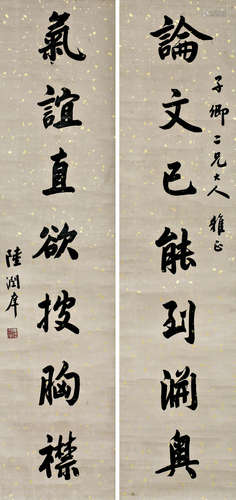 論文已能到淵奥
子卿二兄大人雅正
氣誼直欲披胸襟
陸潤庠